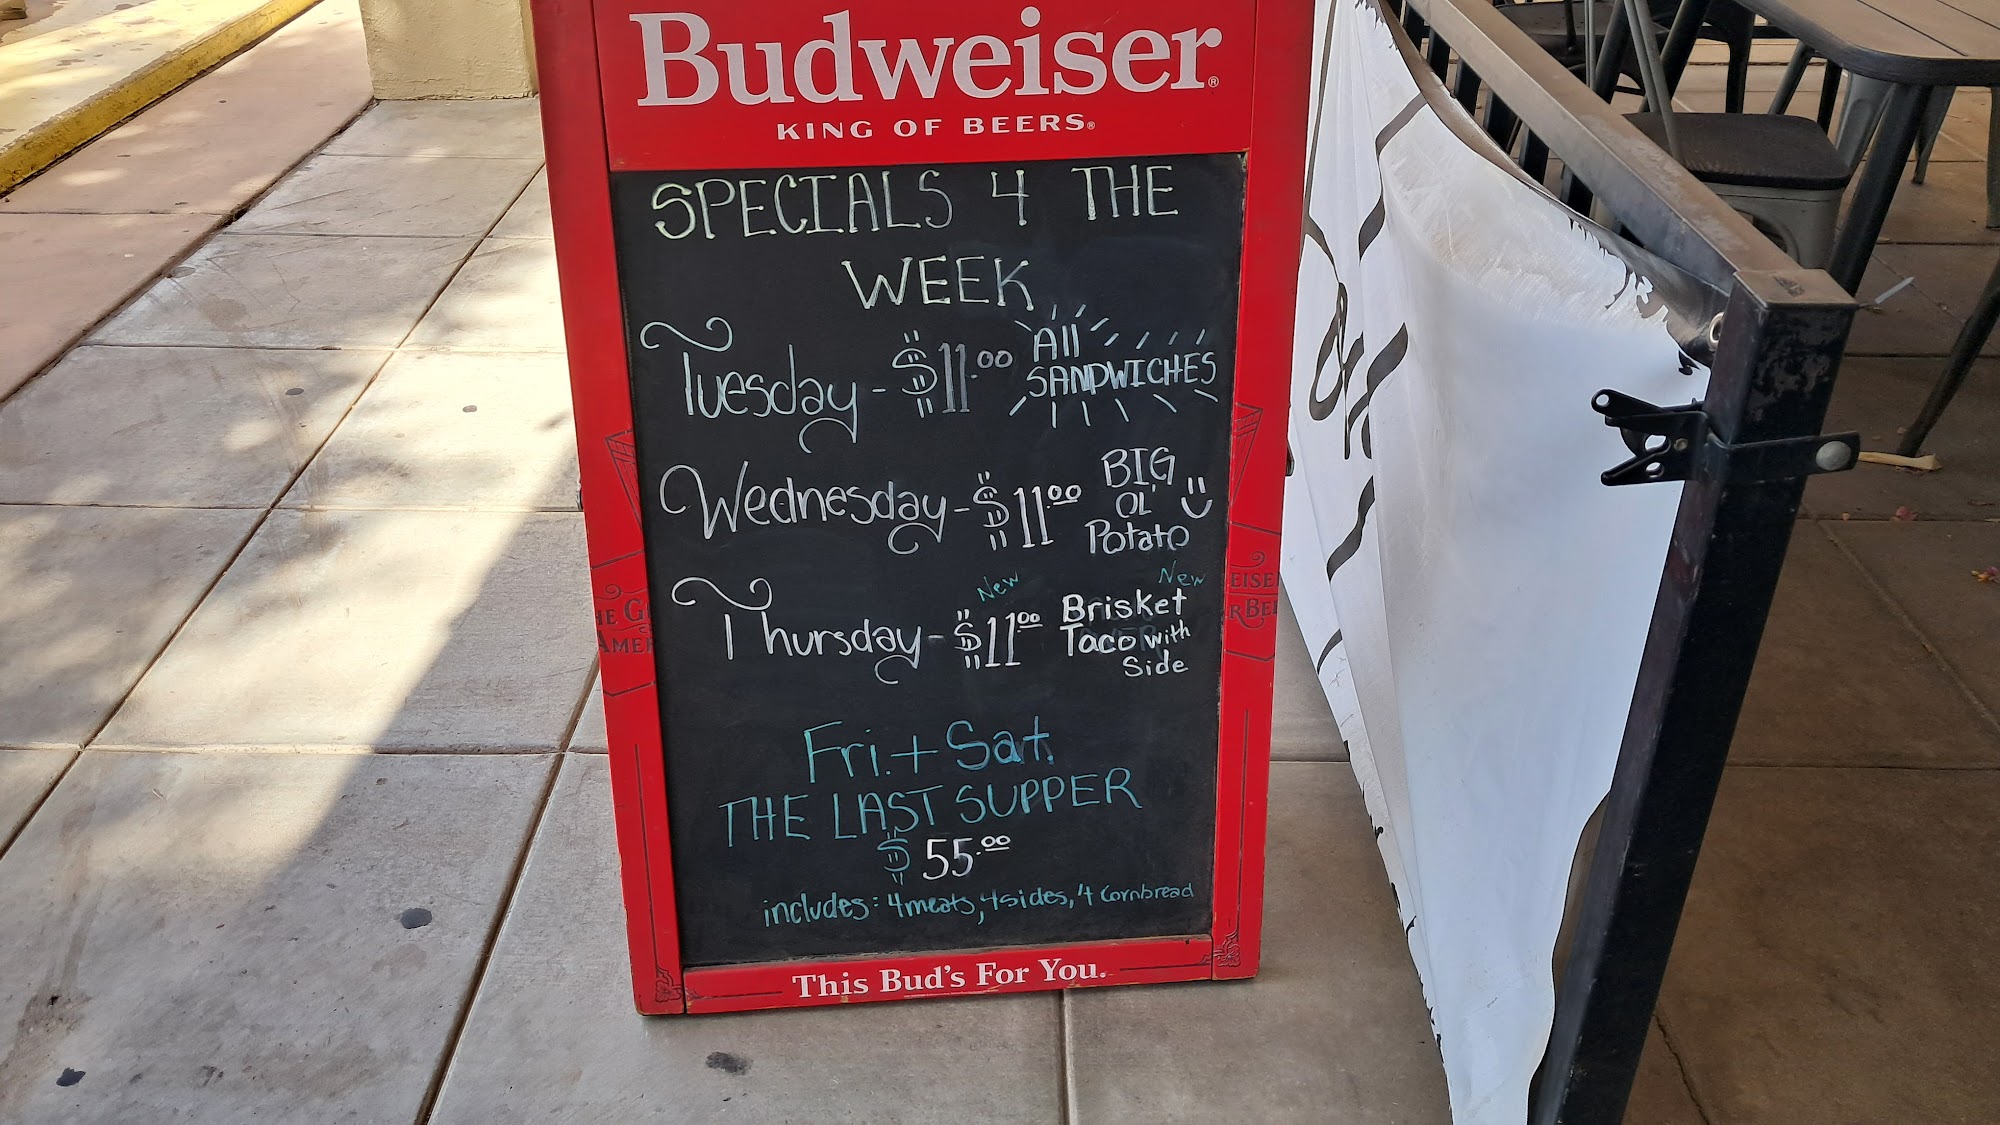 Budweiser®
KING OF BEERS®
SPECIALS 4 THE
WEEK
Tuesday - $11.00 All
SANDWICHES
Wednesday - $11.00 BIG
OL'
Potato
New New
Thursday - $11.00 Brisket
Taco with
Side
Fri. + Sat.
THE LAST SUPPER
$55.00
includes: 4 meats, 4 sides, 4 Cornbread
This Bud's For You.